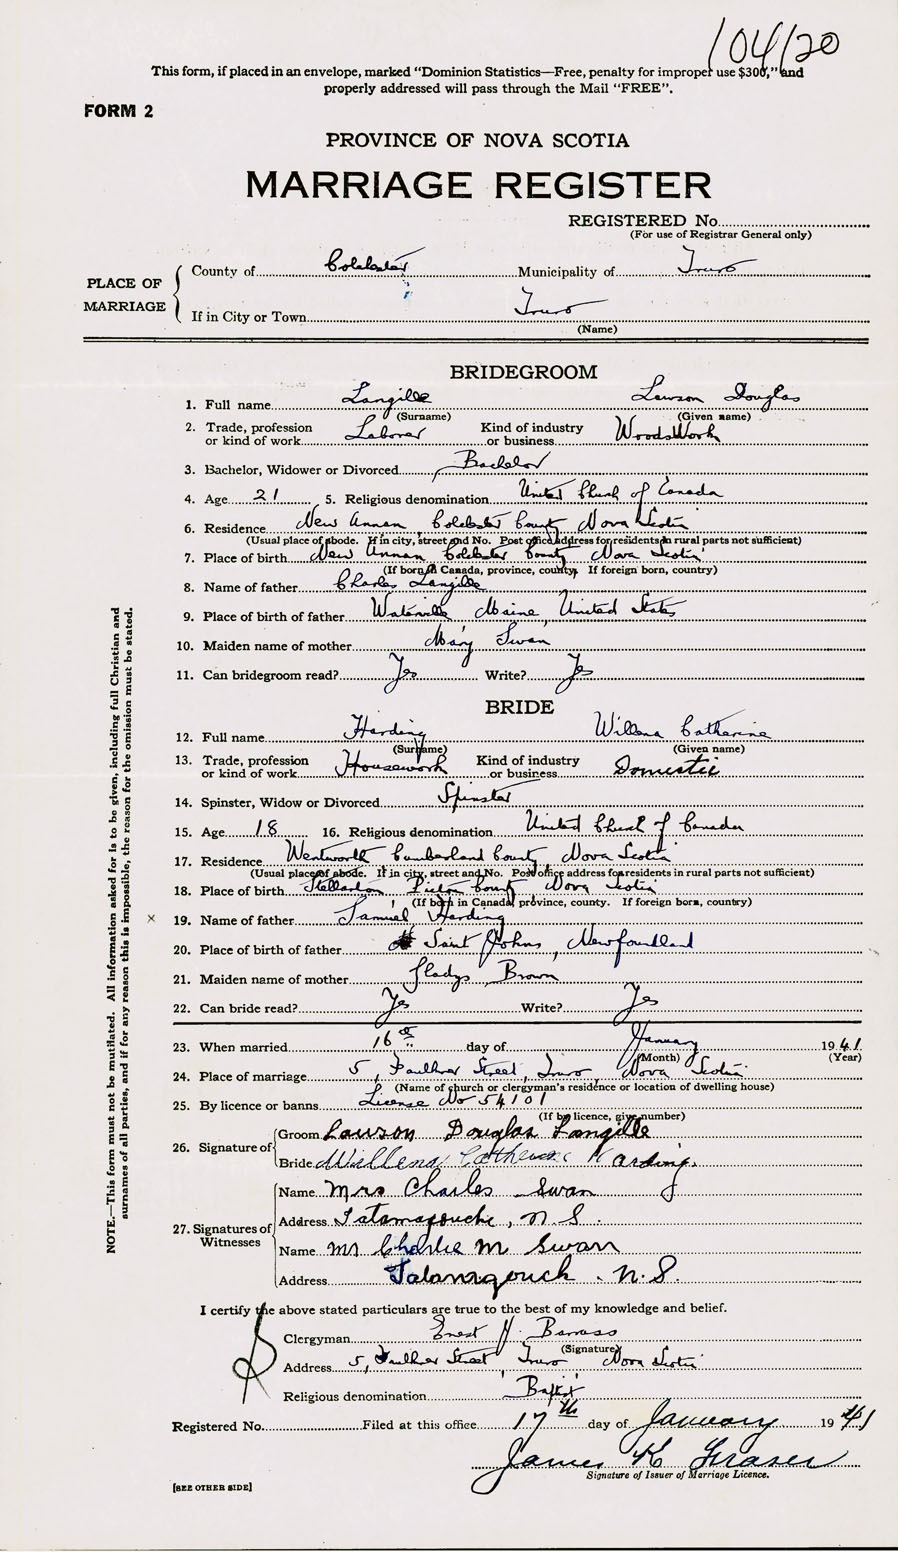 104120
This form, if placed in an envelope, marked "Dominion Statistics—Free, penalty for improper use $300," and
properly addressed will pass through the Mail "FREE".
FORM 2
PROVINCE OF NOVA SCOTIA
MARRIAGE REGISTER
REGISTERED No.
(For use of Registrar General only)
PLACE OF MARRIAGE
County of Colchester Municipality of Truro
If in City or Town Truro
(Name)
BRIDEGROOM
1. Full name Langille Lawson Douglas
(Surname) (Given name)
2. Trade, profession or kind of work Laborer Kind of industry or business Woods Work
3. Bachelor, Widower or Divorced Bachelor
4. Age 21 5. Religious denomination United Church of Canada
6. Residence New Annan, Colchester County, Nova Scotia
(Usual place of abode. If in city, street and No. Post office address for residents in rural parts not sufficient)
7. Place of birth New Annan Colchester County Nova Scotia
(If born in Canada, province, county. If foreign born, country)
8. Name of father Charles Langille
9. Place of birth of father Waterville, Maine, United States
10. Maiden name of mother Mary Swan
11. Can bridegroom read? Yes Write? Yes
BRIDE
12. Full name Harding Willena Catherine
(Surname) (Given name)
13. Trade, profession or kind of work Housework Kind of industry or business Domestic
14. Spinster, Widow or Divorced Spinster
15. Age 18 16. Religious denomination United Church of Canada
17. Residence Wentworth Cumberland County, Nova Scotia
(Usual place of abode. If in city, street and No. Post office address for residents in rural parts not sufficient)
18. Place of birth Stellarton Pictou County Nova Scotia
(If born in Canada, province, county. If foreign born, country)
× 19. Name of father Samuel Harding
20. Place of birth of father Saint Johns, Newfoundland
21. Maiden name of mother Gladys Brown
22. Can bride read? Yes Write? Yes
23. When married 16th day of January 1941
(Month) (Year)
24. Place of marriage 5, Faulkner Street, Truro, Nova Scotia
(Name of church or clergyman's residence or location of dwelling house)
25. By licence or banns License No 54101
(If by licence, give number)
26. Signature of Groom Lawson Douglas Langille
Bride Willena Catherine Harding.
27. Signatures of Witnesses
Name Mrs Charles Swan
Address Tatamagouche, N.S.
Name Mr Charlie M Swan
Address Tatamagouch. N.S.
I certify the above stated particulars are true to the best of my knowledge and belief.
Clergyman Ernest H. Barrass
(Signature)
Address 5, Faulkner Street, Truro Nova Scotia
Religious denomination Baptist
Registered No. Filed at this office 17th day of January 1941
James K Fraser
Signature of Issuer of Marriage Licence.
[SEE OTHER SIDE]
NOTE.—This form must not be mutilated. All information asked for is to be given, including full Christian and
surnames of all parties, and if for any reason this is impossible, the reason for the omission must be stated.